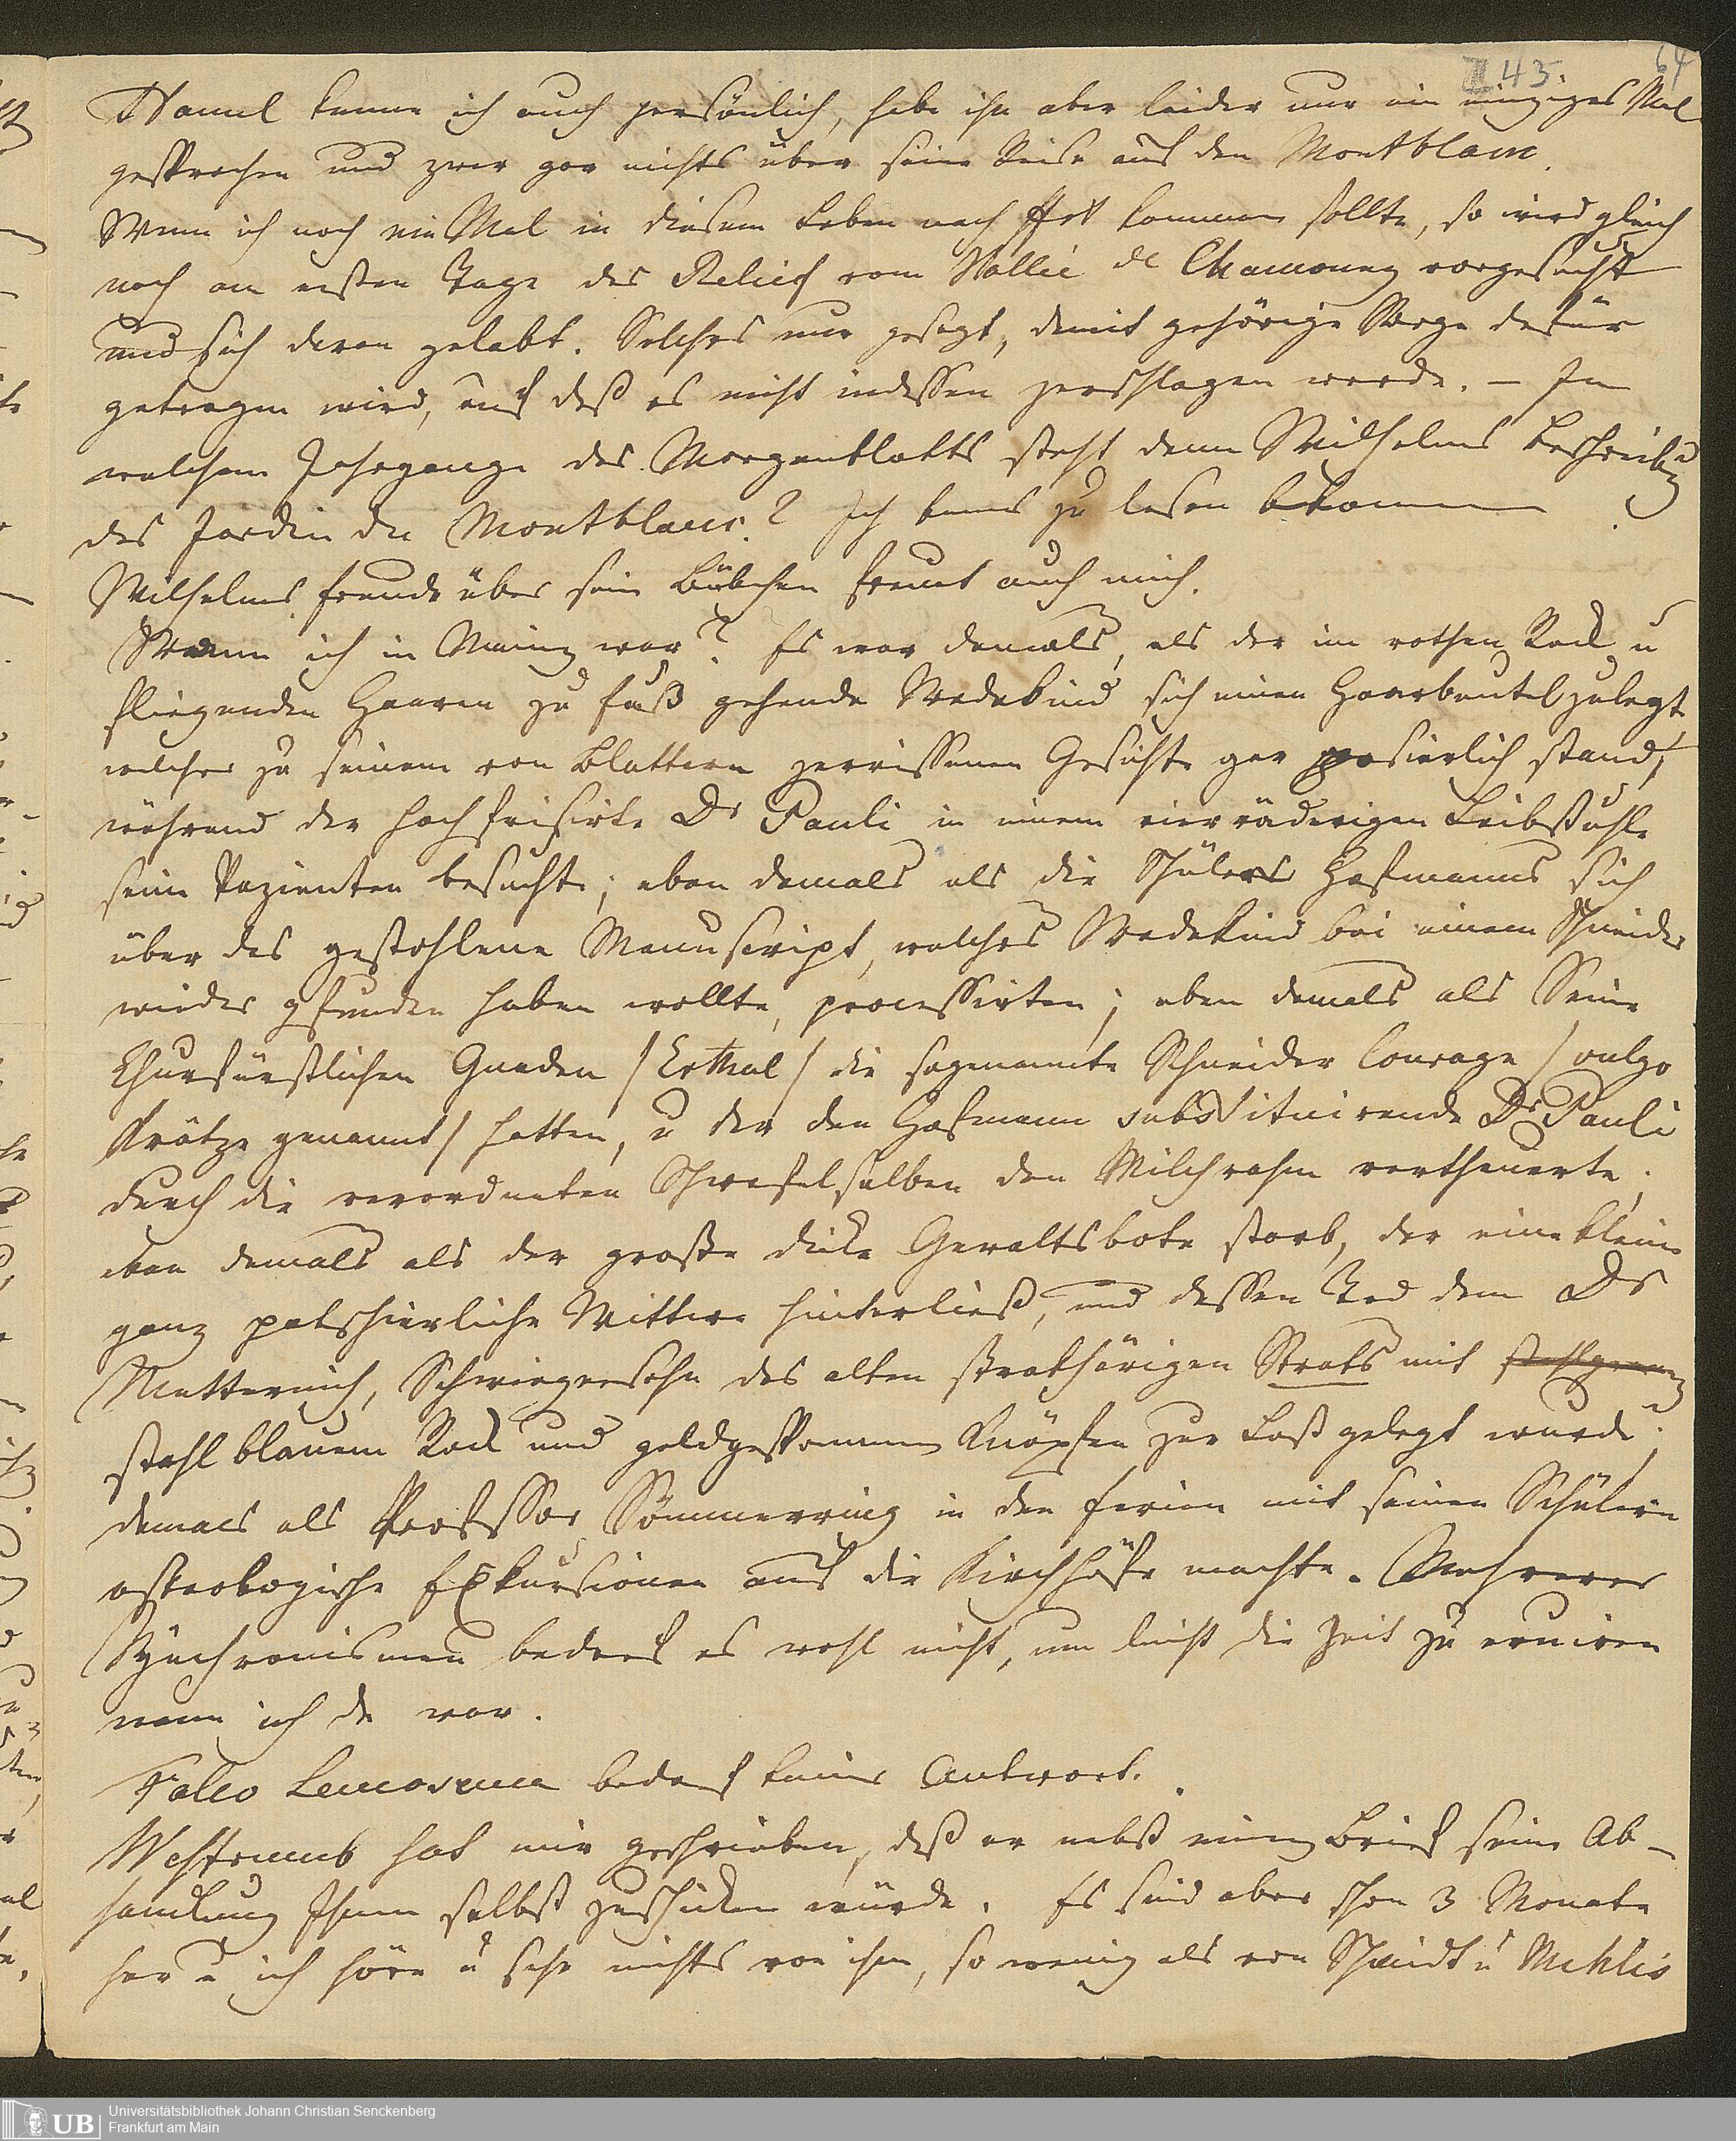 143 64
Hamel kenne ich auch persönlich, habe ihn aber leider nur ein einziges Mal
gesprochen und zwar gar nichts über seine Reise auf den Montblanc.
Wenn ich noch ein Mal in diesem Leben nach Ffrt kommen sollte, so wird gleich
noch am ersten Tage das Relief vom Vallée de Chamouny vorgesucht
und sich daran gelabt. Solches nur gesagt, damit gehörige Sorge dafür
getragen wird, auf daß es nicht indessen zerschlagen werde. – In
welchem Jahrgange des Morgenblatts steht denn Wilhelms Beschreibung
des Jardin du Montblanc? Ich kanns zu lesen bekommen.
Wilhelms Freude über sein Bübchen freut auch mich.
Wann ich in Mainz war? Es war damals, als der im rothen Rock u
fliegenden Haaren zu Fuß gehende Wedekind sich einen Haarbeutel zulegt,
welcher zu seinem von Blattern zerrissenen Gesichte gar possierlich stand,
während der hochfrisirte Dr Pauli in einem vierräderigen Leibstuhle
seine Pazienten besuchte; eben damals als die Schülers Hofmanns sich
über das gestohlene Manuscript, welches Wedekind bei einem Schneider
wieder gefunden haben wollte, processirten; eben damals als Seine
Churfürstlichen Gnaden /Erthal/ die sogenannte Schneider Courage /vulgo
Krätze genannt/ hatten, u der den Hofmann substituirende Dr Pauli
durch die verordneten Schwefelsalben den Milchrahm vertheuerte;
eben damals als der große dicke Gewaltsbote starb, der eine kleine
ganz patschierliche Wittwe hinterließ, und dessen Tod dem Dr
Metternich, Schwiegersohn des alten strathörigen Strats mit
stahlblauem Rock und goldgesponnenen Knöpfen zur Last gelegt wurde;
damals als Professor Sömmerring in den Ferien mit seinen Schülern
osteologische Exkursionen auf die Kirchhöfe machte. Mehrerer
Synchronismen bedarf es wohl nicht, um leicht die Zeit zu eruiren
wann ich da war.
Falco bedarf keiner Antwort.
Westrumb hat mir geschrieben, daß er nebst einem Brief seine Ab-
handlung Ihnen selbst zuschicken würde. Es sind aber schon 3 Monate
her u ich höre u sehe nichts von ihm, so wenig als von Schmidt u Mehlis
UB Universitätsbibliothek Johann Christian Senckenberg
Frankfurt am Main